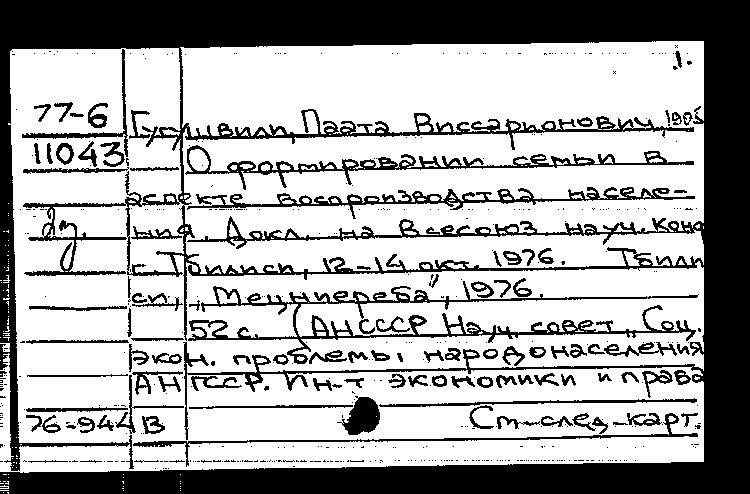 1.
77-6 Гугушвили, Паата Виссарионович, 1905
11043 О формировании семьи в
аспекте воспроизводства населе-
ния. Докл. на Всесоюз. науч. конф
г. Тбилиси, 12-14 окт. 1976. Тбили
си, „Мецниереба", 1976.
52 с. (АН СССР Науч. совет „Соц.
экон. проблемы народонаселения
АН ГССР. Ин-т экономики и права
76-944 В См-след-карт.